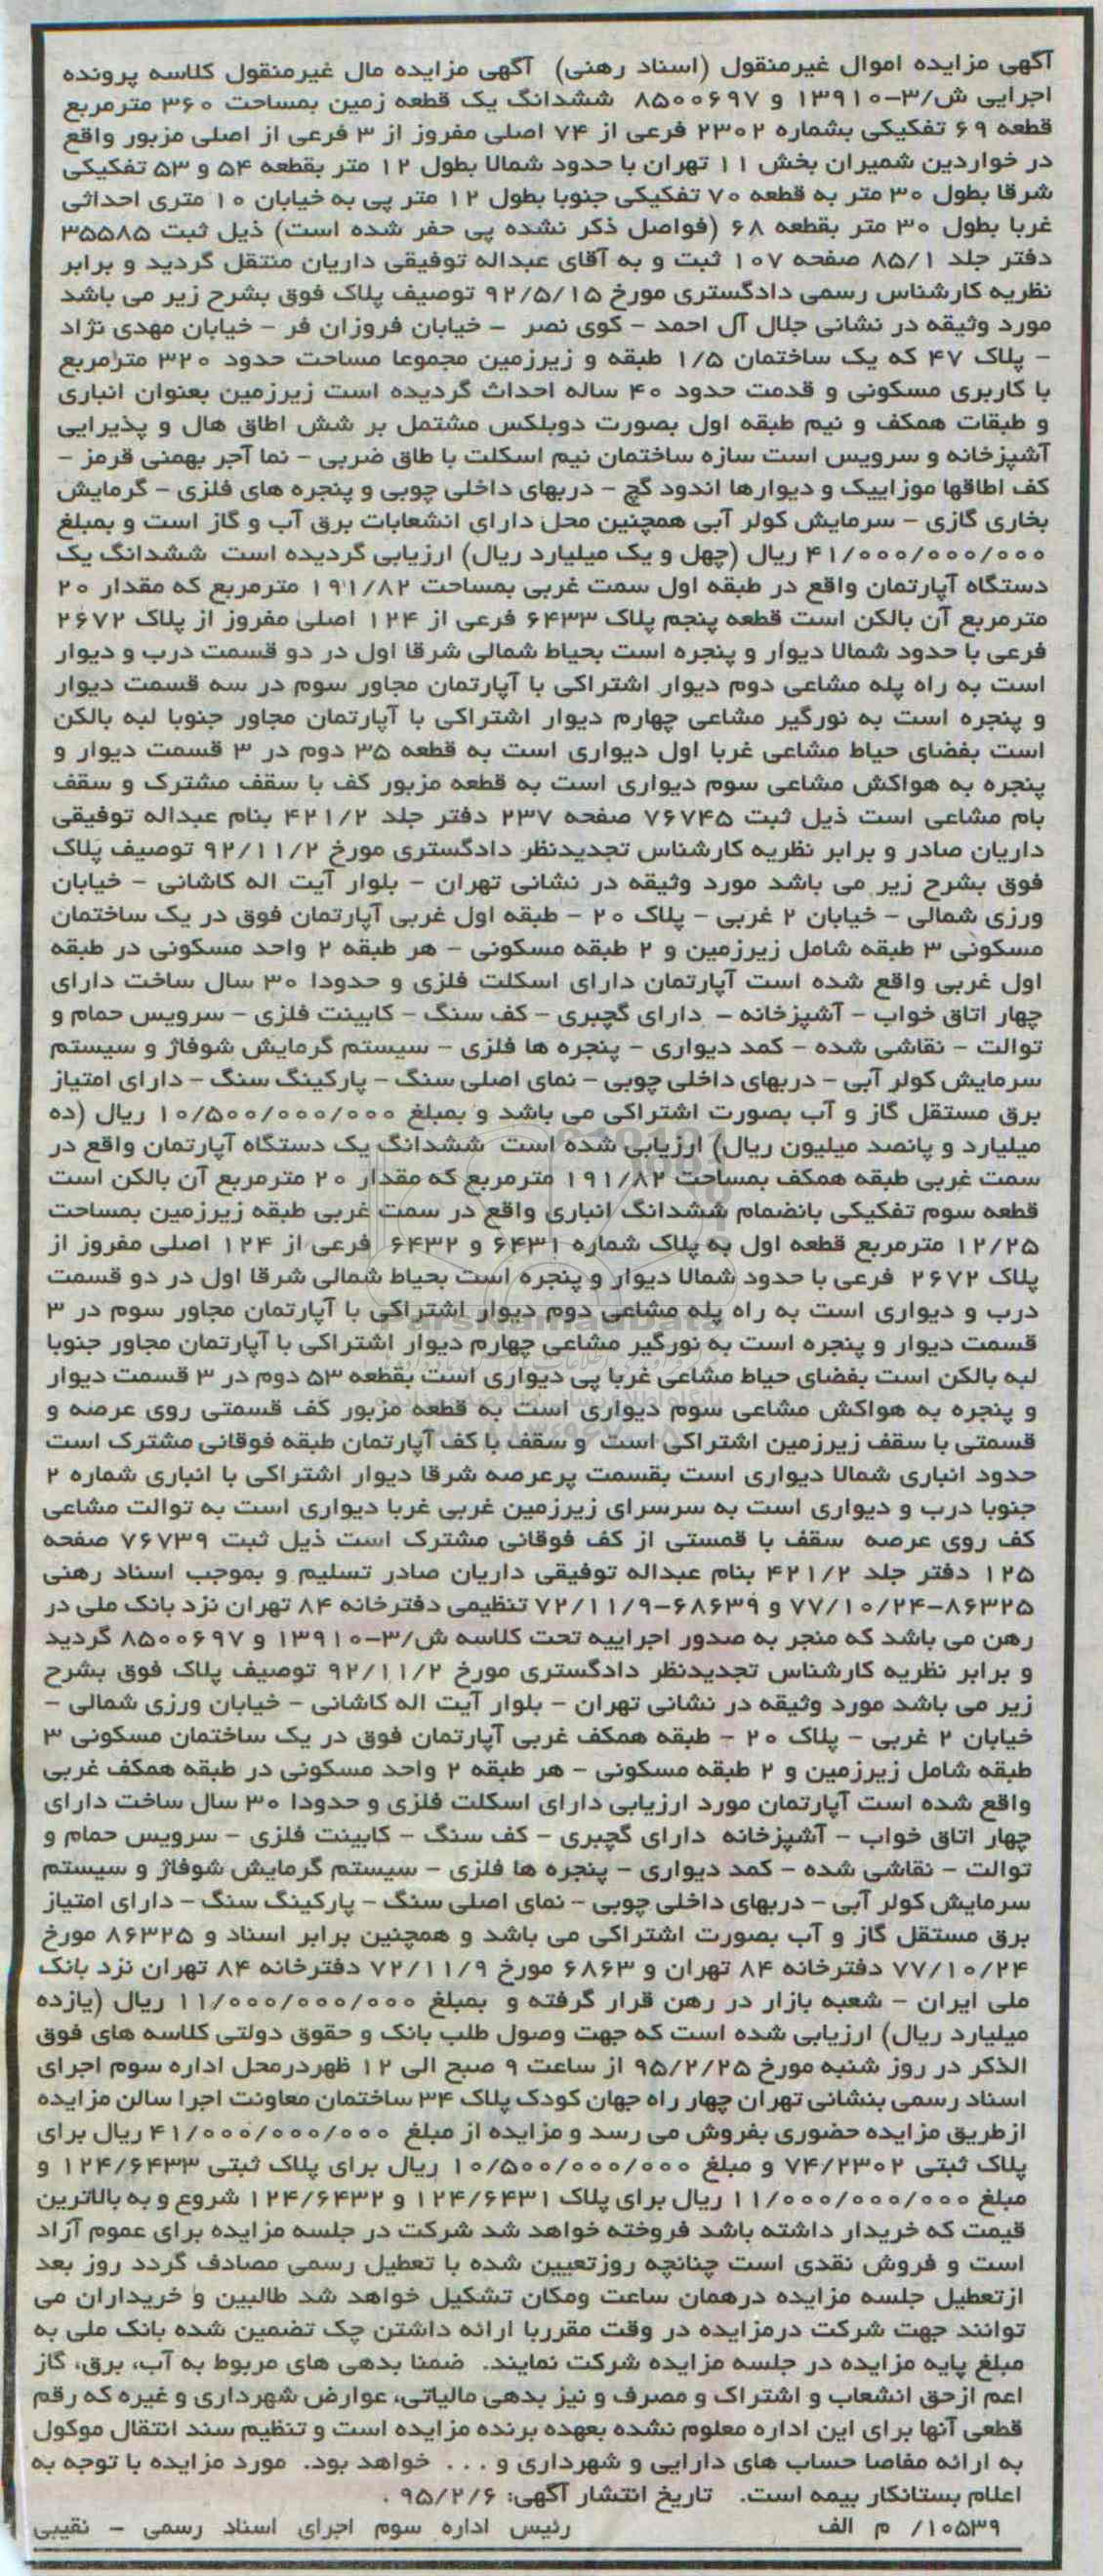 آگهی مزایده اموال غیرمنقول (اسناد رهنی) آگهی مزایده مال غیرمنقول کلاسه پرونده
اجرایی ش/۳-۱۳۹۱۰ و ۸۵۰۰۶۹۷ ششدانگ یک قطعه زمین بمساحت ۳۶۰ مترمربع
قطعه ۶۹ تفکیکی بشماره ۲۳۰۲ فرعی از ۷۴ اصلی مفروز از ۳ فرعی از اصلی مزبور واقع
در خواردین شمیران بخش ۱۱ تهران با حدود شمالا بطول ۱۲ متر بقطعه ۵۴ و ۵۳ تفکیکی
شرقا بطول ۳۰ متر به قطعه ۷۰ تفکیکی جنوبا بطول ۱۲ متر پی به خیابان ۱۰ متری احداثی
غربا بطول ۳۰ متر بقطعه ۶۸ (فواصل ذکر نشده پی حفر شده است) ذیل ثبت ۳۵۵۸۵
دفتر جلد ۸۵/۱ صفحه ۱۰۷ ثبت و به آقای عبداله توفیقی داریان منتقل گردید و برابر
نظریه کارشناس رسمی دادگستری مورخ ۹۲/۵/۱۵ توصیف پلاک فوق بشرح زیر می باشد
مورد وثیقه در نشانی جلال آل احمد - کوی نصر - خیابان فروزان فر - خیابان مهدی نژاد
- پلاک ۴۷ که یک ساختمان ۱/۵ طبقه و زیرزمین مجموعا مساحت حدود ۳۲۰ مترمربع
با کاربری مسکونی و قدمت حدود ۴۰ ساله احداث گردیده است زیرزمین بعنوان انباری
و طبقات همکف و نیم طبقه اول بصورت دوبلکس مشتمل بر شش اطاق هال و پذیرایی
آشپزخانه و سرویس است سازه ساختمان نیم اسکلت با طاق ضربی - نما آجر بهمنی قرمز -
کف اطاقها موزاییک و دیوارها اندود گچ - دربهای داخلی چوبی و پنجره های فلزی - گرمایش
بخاری گازی - سرمایش کولر آبی همچنین محل دارای انشعابات برق آب و گاز است و بمبلغ
۴۱/۰۰۰/۰۰۰/۰۰۰ ریال (چهل و یک میلیارد ریال) ارزیابی گردیده است ششدانگ یک
دستگاه آپارتمان واقع در طبقه اول سمت غربی بمساحت ۱۹۱/۸۲ مترمربع که مقدار ۲۰
مترمربع آن بالکن است قطعه پنجم پلاک ۶۴۳۳ فرعی از ۱۲۴ اصلی مفروز از پلاک ۲۶۷۲
فرعی با حدود شمالا دیوار و پنجره است بحیاط شمالی شرقا اول در دو قسمت درب و دیوار
است به راه پله مشاعی دوم دیوار اشتراکی با آپارتمان مجاور سوم در سه قسمت دیوار
و پنجره است به نورگیر مشاعی چهارم دیوار اشتراکی با آپارتمان مجاور جنوبا لبه بالکن
است بفضای حیاط مشاعی غربا اول دیواری است به قطعه ۳۵ دوم در ۳ قسمت دیوار و
پنجره به هواکش مشاعی سوم دیواری است به قطعه مزبور کف با سقف مشترک و سقف
بام مشاعی است ذیل ثبت ۷۶۷۴۵ صفحه ۲۳۷ دفتر جلد ۴۲۱/۲ بنام عبداله توفیقی
داریان صادر و برابر نظریه کارشناس تجدیدنظر دادگستری مورخ ۹۲/۱۱/۲ توصیف پلاک
فوق بشرح زیر می باشد مورد وثیقه در نشانی تهران - بلوار آیت اله کاشانی - خیابان
ورزی شمالی - خیابان ۲ غربی - پلاک ۲۰ - طبقه اول غربی آپارتمان فوق در یک ساختمان
مسکونی ۳ طبقه شامل زیرزمین و ۲ طبقه مسکونی - هر طبقه ۲ واحد مسکونی در طبقه
اول غربی واقع شده است آپارتمان دارای اسکلت فلزی و حدودا ۳۰ سال ساخت دارای
چهار اتاق خواب - آشپزخانه - دارای گچبری - کف سنگ - کابینت فلزی - سرویس حمام و
توالت - نقاشی شده - کمد دیواری - پنجره ها فلزی - سیستم گرمایش شوفاژ و سیستم
سرمایش کولر آبی - دربهای داخلی چوبی - نمای اصلی سنگ - پارکینگ سنگ - دارای امتیاز
برق مستقل گاز و آب بصورت اشتراکی می باشد و بمبلغ ۱۰/۵۰۰/۰۰۰/۰۰۰ ریال (ده
میلیارد و پانصد میلیون ریال) ارزیابی شده است ششدانگ یک دستگاه آپارتمان واقع در
سمت غربی طبقه همکف بمساحت ۱۹۱/۸۲ مترمربع که مقدار ۲۰ مترمربع آن بالکن است
قطعه سوم تفکیکی بانضمام ششدانگ انباری واقع در سمت غربی طبقه زیرزمین بمساحت
۱۲/۲۵ مترمربع قطعه اول به پلاک شماره ۶۴۳۱ و ۶۴۳۲ فرعی از ۱۲۴ اصلی مفروز از
پلاک ۲۶۷۲ فرعی با حدود شمالا دیوار و پنجره است بحیاط شمالی شرقا اول در دو قسمت
درب و دیواری است به راه پله مشاعی دوم دیوار اشتراکی با آپارتمان مجاور سوم در ۳
قسمت دیوار و پنجره است به نورگیر مشاعی چهارم دیوار اشتراکی با آپارتمان مجاور جنوبا
لبه بالکن است بفضای حیاط مشاعی غربا پی دیواری است بقطعه ۵۳ دوم در ۳ قسمت دیوار
و پنجره به هواکش مشاعی سوم دیواری است به قطعه مزبور کف قسمتی روی عرصه و
قسمتی با سقف زیرزمین اشتراکی است و سقف با کف آپارتمان طبقه فوقانی مشترک است
حدود انباری شمالا دیواری است بقسمت پرعرصه شرقا دیوار اشتراکی با انباری شماره ۲
جنوبا درب و دیواری است به سرسرای زیرزمین غربی غربا دیواری است به توالت مشاعی
کف روی عرصه سقف با قمستی از کف فوقانی مشترک است ذیل ثبت ۷۶۷۳۹ صفحه
۱۲۵ دفتر جلد ۴۲۱/۲ بنام عبداله توفیقی داریان صادر تسلیم و بموجب اسناد رهنی
۸۶۳۲۵-۷۷/۱۰/۲۴ و ۶۸۶۳۹-۷۲/۱۱/۹ تنظیمی دفترخانه ۸۴ تهران نزد بانک ملی در
رهن می باشد که منجر به صدور اجراییه تحت کلاسه ش/۳-۱۳۹۱۰ و ۸۵۰۰۶۹۷ گردید
و برابر نظریه کارشناس تجدیدنظر دادگستری مورخ ۹۲/۱۱/۲ توصیف پلاک فوق بشرح
زیر می باشد مورد وثیقه در نشانی تهران - بلوار آیت اله کاشانی - خیابان ورزی شمالی -
خیابان ۲ غربی - پلاک ۲۰ - طبقه همکف غربی آپارتمان فوق در یک ساختمان مسکونی ۳
طبقه شامل زیرزمین و ۲ طبقه مسکونی - هر طبقه ۲ واحد مسکونی در طبقه همکف غربی
واقع شده است آپارتمان مورد ارزیابی دارای اسکلت فلزی و حدودا ۳۰ سال ساخت دارای
چهار اتاق خواب - آشپزخانه دارای گچبری - کف سنگ - کابینت فلزی - سرویس حمام و
توالت - نقاشی شده - کمد دیواری - پنجره ها فلزی - سیستم گرمایش شوفاژ و سیستم
سرمایش کولر آبی - دربهای داخلی چوبی - نمای اصلی سنگ - پارکینگ سنگ - دارای امتیاز
برق مستقل گاز و آب بصورت اشتراکی می باشد و همچنین برابر اسناد و ۸۶۳۲۵ مورخ
۷۷/۱۰/۲۴ دفترخانه ۸۴ تهران و ۶۸۶۳ مورخ ۷۲/۱۱/۹ دفترخانه ۸۴ تهران نزد بانک
ملی ایران - شعبه بازار در رهن قرار گرفته و بمبلغ ۱۱/۰۰۰/۰۰۰/۰۰۰ ریال (یازده
میلیارد ریال) ارزیابی شده است که جهت وصول طلب بانک و حقوق دولتی کلاسه های فوق
الذکر در روز شنبه مورخ ۹۵/۲/۲۵ از ساعت ۹ صبح الی ۱۲ ظهردرمحل اداره سوم اجرای
اسناد رسمی بنشانی تهران چهار راه جهان کودک پلاک ۳۴ ساختمان معاونت اجرا سالن مزایده
ازطریق مزایده حضوری بفروش می رسد و مزایده از مبلغ ۴۱/۰۰۰/۰۰۰/۰۰۰ ریال برای
پلاک ثبتی ۷۴/۲۳۰۲ و مبلغ ۱۰/۵۰۰/۰۰۰/۰۰۰ ریال برای پلاک ثبتی ۱۲۴/۶۴۳۳ و
مبلغ ۱۱/۰۰۰/۰۰۰/۰۰۰ ریال برای پلاک ۱۲۴/۶۴۳۱ و ۱۲۴/۶۴۳۲ شروع و به بالاترین
قیمت که خریدار داشته باشد فروخته خواهد شد شرکت در جلسه مزایده برای عموم آزاد
است و فروش نقدی است چنانچه روزتعیین شده با تعطیل رسمی مصادف گردد روز بعد
ازتعطیل جلسه مزایده درهمان ساعت ومکان تشکیل خواهد شد طالبین و خریداران می
توانند جهت شرکت درمزایده در وقت مقرربا ارائه داشتن چک تضمین شده بانک ملی به
مبلغ پایه مزایده در جلسه مزایده شرکت نمایند. ضمنا بدهی های مربوط به آب، برق، گاز
اعم ازحق انشعاب و اشتراک و مصرف و نیز بدهی مالیاتی، عوارض شهرداری و غیره که رقم
قطعی آنها برای این اداره معلوم نشده بعهده برنده مزایده است و تنظیم سند انتقال موکول
به ارائه مفاصا حساب های دارایی و شهرداری و . . . خواهد بود. مورد مزایده با توجه به
اعلام بستانکار بیمه است. تاریخ انتشار آگهی: ۹۵/۲/۶ .
۱۰۵۳۹/ م الف رئیس اداره سوم اجرای اسناد رسمی - نقیبی